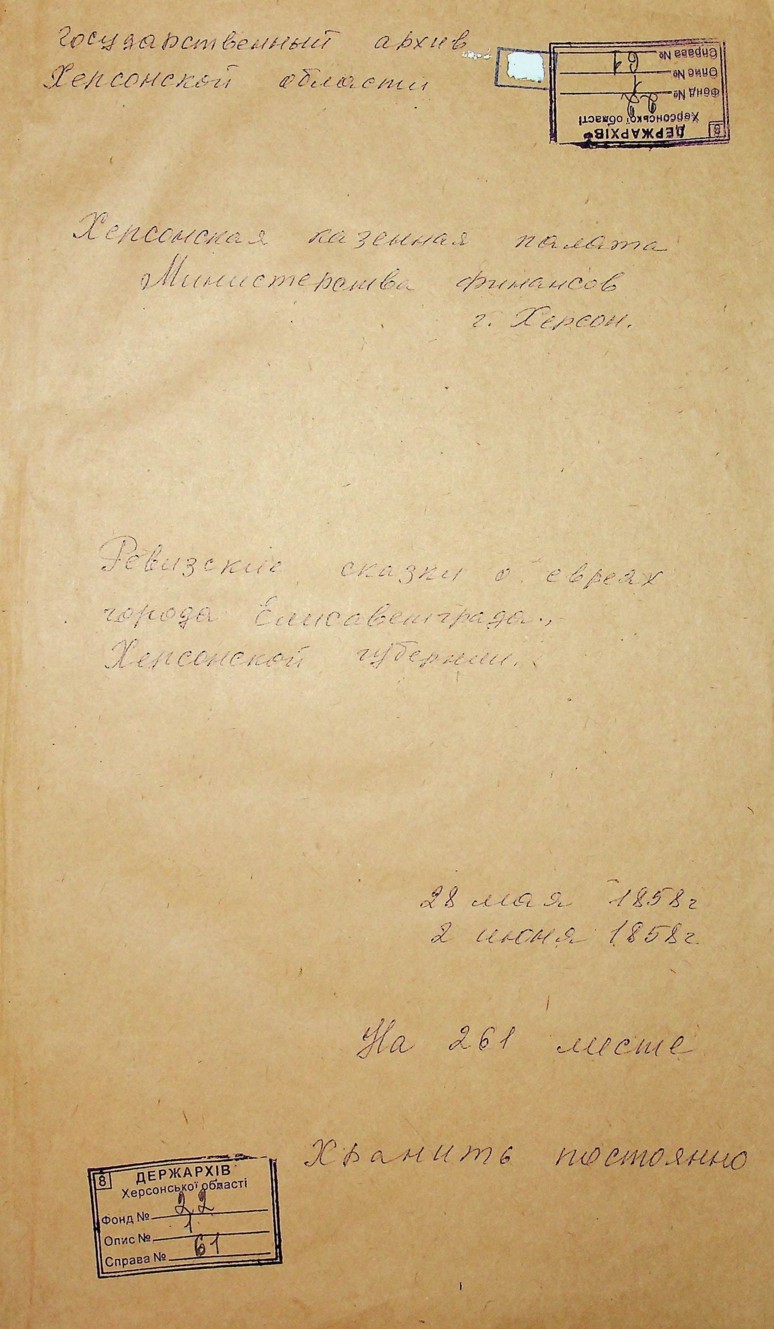 Государственный архив
Херсонской области
8 ДЕРЖАРХІВ
Херсонської області
Фонд № 22
Опис № 1
Справа № 61
Херсонская казенная палата
Министерства финансов
г. Херсон.
Ревизские сказки о евреях
города Елисаветграда,
Херсонской губернии.
28 мая 1858 г
2 июня 1858 г.
На 261 листе
Хранить постоянно
8 ДЕРЖАРХІВ
Херсонської області
Фонд № 22
Опис № 1
Справа № 61